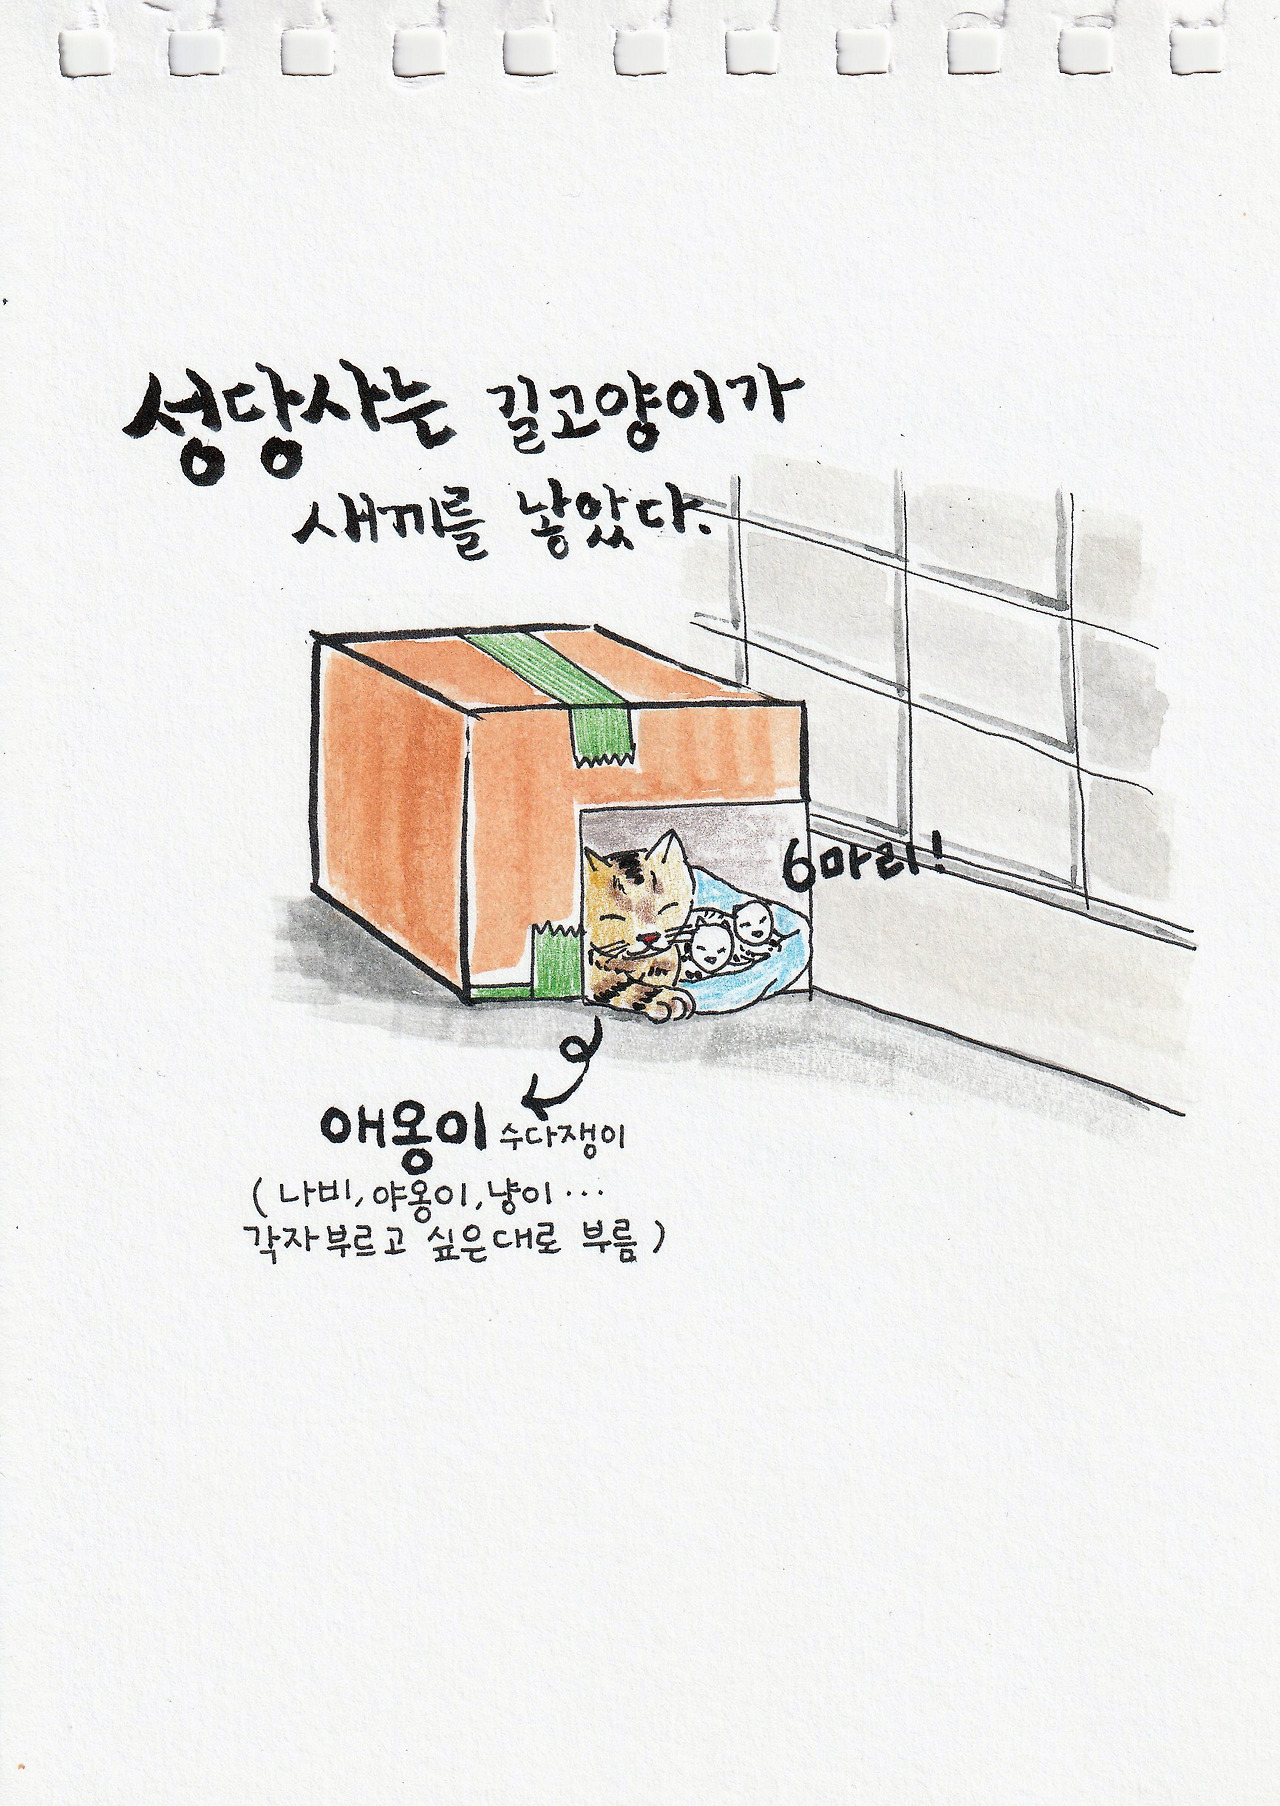 성당사는 길고양이가
새끼를 낳았다.
6마리!
애옹이 수다쟁이
(나비, 야옹이, 냥이...
각자 부르고 싶은대로 부름)